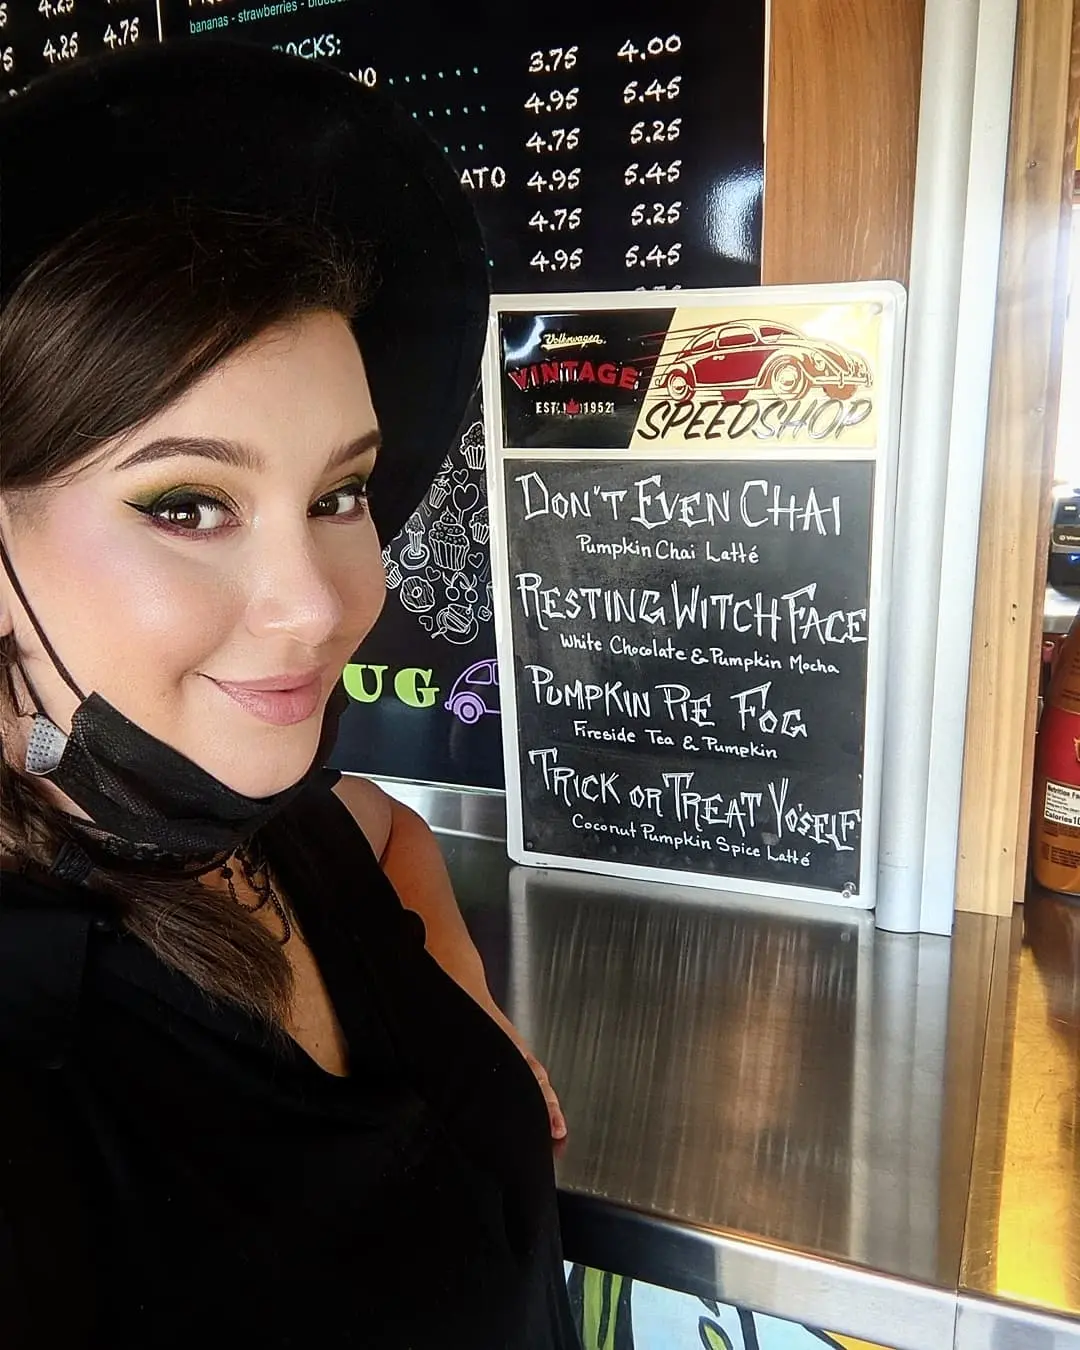 4.25 4.75
4.25 4.75
bananas - strawberries -
3.75 4.00
4.95 5.45
4.75 5.25
4.95 5.45
4.75 5.25
4.95 5.45
Volkswagen
VINTAGE
EST. 1952
SPEEDSHOP
DON'T EVEN CHAI
Pumpkin Chai Latté
RESTING WITCH FACE
White Chocolate & Pumpkin Mocha
PUMPKIN PIE FOG
Fireside Tea & Pumpkin
TRICK OR TREAT YO'SELF
Coconut Pumpkin Spice Latté
UG
Nutrition
Calories